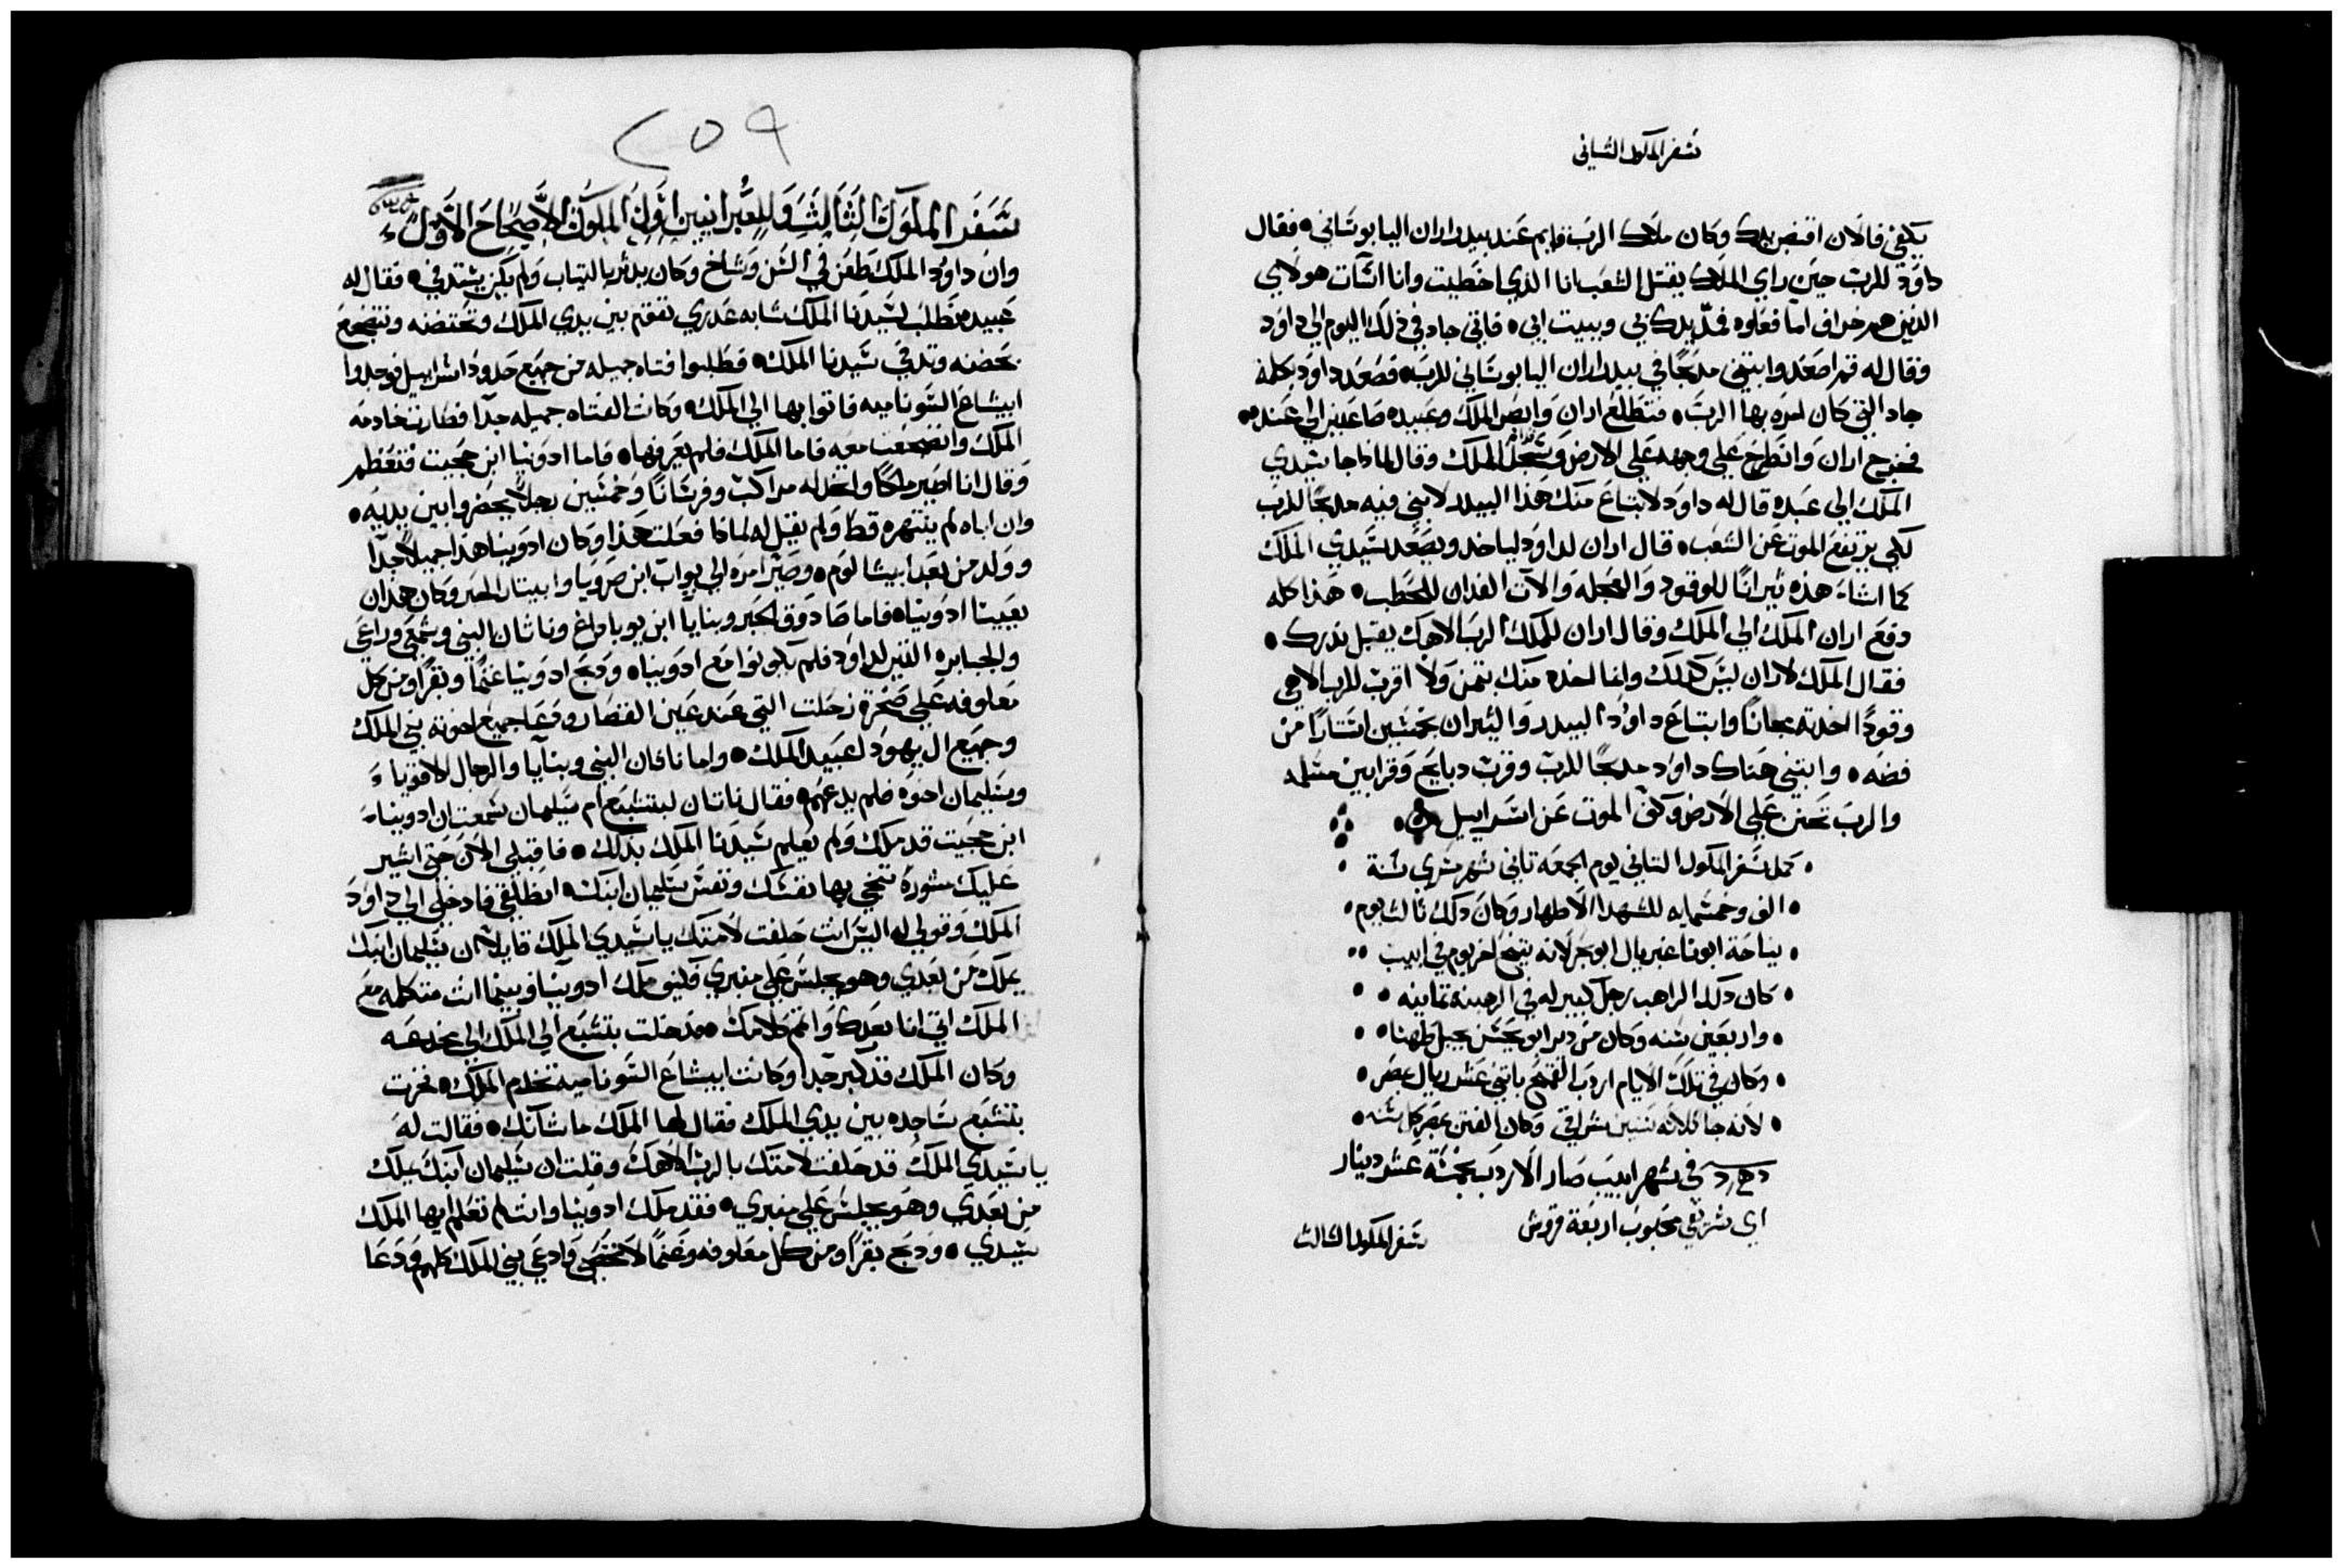 سفر الملوك الثاني
يكفي فالان اقبض يدك وكان ملاك الرب قايم عند بيدر اران اليابوساني • فقال
داود للرب حين راي الملاك يقتل الشعب انا الذي اخطيت وانا اسات هولاي
الذين هم خراف اما فعلوه فلترد يدك بي وببيت ابي • فاتي جاد في ذلك اليوم الي داود
وقال له قم اصعد وابتني مدبحًا في بيدر اران اليابوساني للرب • فصعد داود بكلمة
جاد التي كان امره بها الرب • فتطلع اران وابصر الملك وعبيده صاعدين الي عنده •
فخرج اران وانطرح علي وجهه علي الارض وسجد للملك وقال لماذا جا سيدي
الملك الي عبده قال له داود لابتاع منك هذا البيدر لابني فيه مدبحًا للرب
لكي يرتفع الموت عن الشعب • قال اران لداود لياخد ويصعد سيدي الملك
كما اشاء هذه ثيرانًا للوقود والعجله والات الفدان للحطب • هذا كله
دفع اران الملك الي الملك وقال اران للملك الرب الاهك يقبل نذرك •
فقال الملك لاران ليس كذلك وانما اخده منك بتمن ولا اقرب للرب الاهي
وقودًا اخدته مجانًا وابتاع داود البيدر والثيران بخمسين استارًا من
فضه • وابتني هناك داود مدبحًا للرب وقرب دبايح وقرابين مسلمه
والرب تحنن علي الارض وكف الموت عن اسراييل •
• كمل سفر الملوك التاني يوم الجمعه تاني شهر مسري سنة •
• الف وخمسمايه للشهدا الاطهار وكان دلك تالت يوم •
• نياحة ابونا غبريال ابو بحر لانه تنيح اخر يوم في ابيب ••
• كان دلك الراهب رجل كبير له في الرهبنه تمانيه •
• واربعين سنه وكان من دير ابو يحنس بجبل طهنا •
• وكان في تلك الايام اردب القمح باتني عشر ريال بمصر •
• لانه جا تلاته سنين شراقي وكان الفتن بمصر كل سنه •
في شهر ابيب صار الاردب بخمسة عشر دينار
اي شريفي محبوب اربعة قروش
سفر الملوك الثالث
٢٥٩
سفر الملوك الثالث وللعبرانيين اول الملوك الاصحاح الاول
وان داود الملك طعن في السن وشاخ وكان يدثر بالتياب ولم يكن يستدفي • فقال له
عبيده نطلب لسيدنا الملك شابه عدري تقوم بين يدي الملك وتحتضنه وتنضجع
بحضنه وتدفي سيدنا الملك • فطلبوا فتاه جميله من جميع حدود اسراييل فوجدوا
ابيشاغ السوناميه فاتوا بها الي الملك • وكانت الفتاه جميله جدًا فصارت خادمه
الملك وانضجعت معه فاما الملك فلم يعرفها • فاما ادونيا ابن حجيت فتعظم
وقال انا اصير ملكًا واتخد له مراكب وفرسانًا وخمسين رجلًا يحضروا بين يديه •
وان اباه لم ينتهره قط ولم يقل له لماذا فعلت هذا وكان ادونيا هذا جميلًا جدًا
وولد من بعد ابيشالوم • وصير امره الي يواب ابن صرويا وابيتار الحبر وكان هذان
يعينا ادونيا • فاما صادوق الحبر وبنايا ابن يوياداع وناتان النبي وشمعي وراعي
والجبابره الذين لداود فلم يكونوا مع ادونيا • ودبح ادونيا غنمًا وبقرًا ومن كل
معلوفه علي صخرة زحلت التي عند عين القصار ودعا جميع اخوته بني الملك
وجميع ال يهودا عبيد الملك • واما ناتان النبي وبنايا والرجال الاقويا
وسليمان اخوه فلم يدعهم • فقال ناتان لبتشبع ام سليمان سمعت ان ادونيا
ابن حجيت قد ملك ولم يعلم سيدنا الملك بذلك • فاقبلي الان حتي اشير
عليك مشورة تنجي بها نفسك ونفس سليمان ابنك • انطلقي فادخلي الي داود
الملك وقولي له اليس انت حلفت لامتك يا سيدي الملك قايلًا ان سليمان ابنك
يملك من بعدي وهو يجلس علي منبري فكيف ملك ادونيا وبينما انت متكلمه مع
الملك اتي انا بعدك واتم كلامك • فدخلت بتشبع الي الملك الي مخدعه
وكان الملك قد كبر جدًا وكانت ابيشاغ السوناميه تخدم الملك • فخرت
بتشبع ساجده بين يدي الملك فقال لها الملك ما شانك • فقالت له
يا سيدي الملك قد حلفت لامتك بالرب الاهك وقلت ان سليمان ابنك يملك
من بعدي وهو يجلس علي منبري • فقد ملك ادونيا وانت لم تعلم ايها الملك
سيدي • ودبح بقرًا ومن كل معلوفه وغنمًا لا تحصي وادعي بني الملك كلهم ودعا